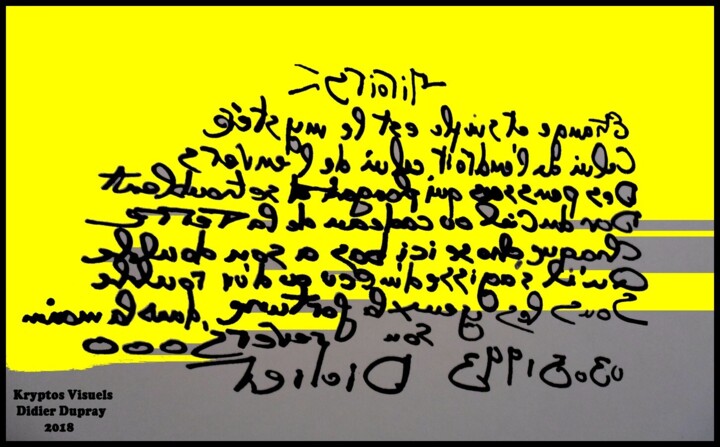 Miroirs
Étrange et simple est le mystère
Celui de l'endroit celui de l'envers
Des qui se troublant
D'or du Ciel ou cadeau de la terre
Chaque chose ici bas a son double
Qu'il s'agisse d'un écu ou d'un rouble
Sous les yeux la fortune, dans la main
son revers
03.05 1993 Didier
Kryptos Visuels
Didier Dupray
2018